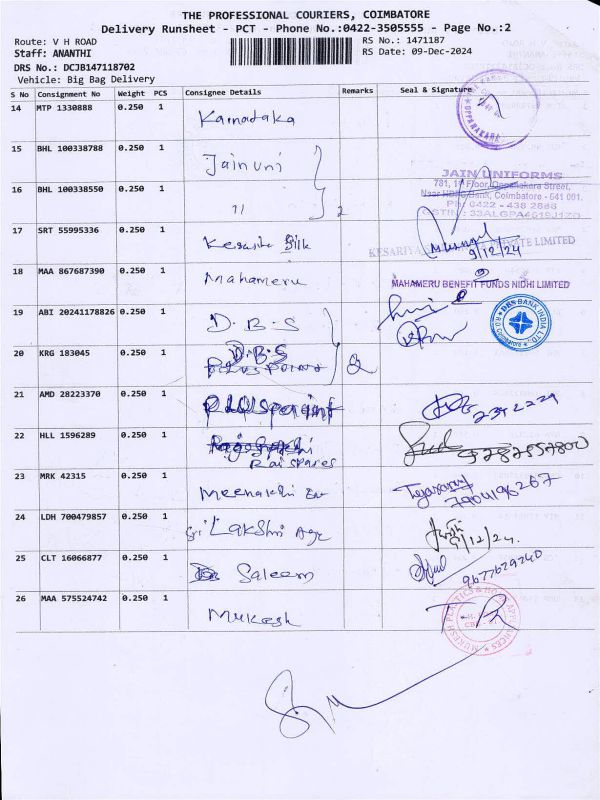 THE PROFESSIONAL COURIERS, COIMBATORE
Delivery Runsheet - PCT - Phone No.:0422-3505555 - Page No.:2
Route: V H ROAD
RS No.: 1471187
Staff: ANANTHI
RS Date: 09-Dec-2024
DRS No.: DCJB147118702
Vehicle: Big Bag Delivery
S No Consignment No Weight PCS Consignee Details Remarks Seal & Signature
14 MTP 1330888 0.250 1 Karnadaka
OPPANAKARA
15 BHL 100338788 0.250 1 Jain uni
JAIN UNIFORMS
781, 1st Floor, Oppanakara Street,
Near HDFC Bank, Coimbatore - 641 001.
Ph: 0422 - 438 2868
GSTIN : 33ALGPA4619J1ZO
16 BHL 100338550 0.250 1 11 2
17 SRT 55995336 0.250 1 Kesaria Silk
KESARIYA PRIVATE LIMITED
9/12/24
18 MAA 867687390 0.250 1 Mahameru
MAHAMERU BENEFIT FUNDS NIDHI LIMITED
19 ABI 20241178826 0.250 1 D.B.S
DBS BANK INDIA LTD.
20 KRG 183045 0.250 1 D.B.S
21 AMD 28223370 0.250 1
22 HLL 1596289 0.250 1
Rai spares
9787857800
23 MRK 42315 0.250 1 Meenakshi
7904196267
24 LDH 700479857 0.250 1 Sri Lakshmi Age
9/12/24.
25 CLT 16066877 0.250 1 Saleem
9677629240
26 MAA 575524742 0.250 1 Mukesh
MUKESH PLASTICS & HOME APPLIANCES